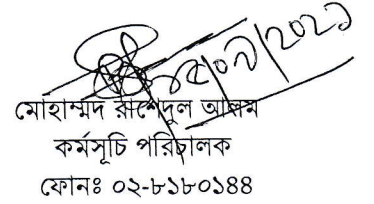 মোহাম্মদ রাশেদুল আলম
কর্মসূচি পরিচালক
ফোনঃ ০২-৮১৮০১৪৪